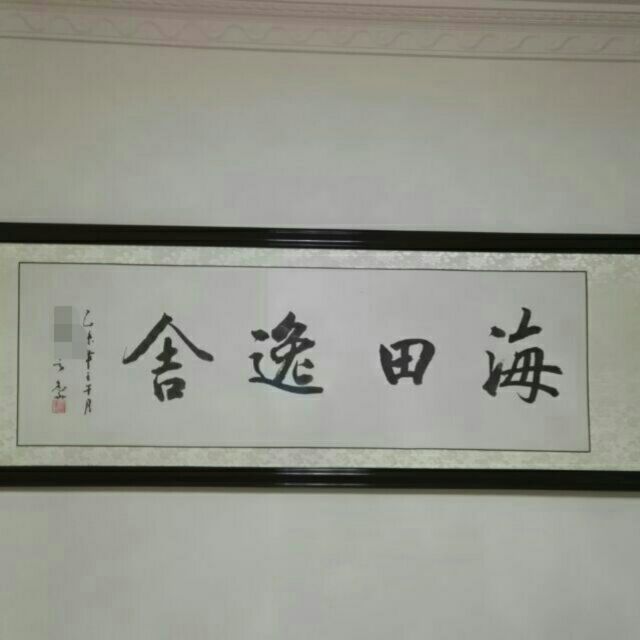 海田逸舍
乙未年
月